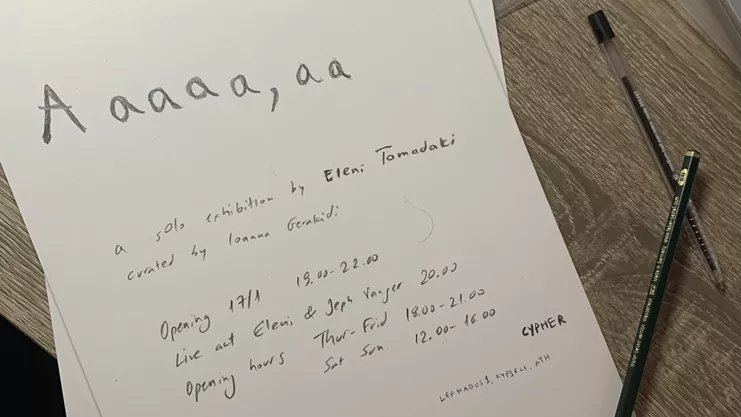 A aaaa, aa
a solo exhibition by Eleni Tomadaki
curated by Ioanna Gerakidi
Opening 17/1 19.00-22.00
Live act Eleni & Jeph Vanger 20.00
Opening hours Thur-Frid 18.00-21.00
Sat Sun 12.00-16.00
CYPHER
KYPSELI, ATH